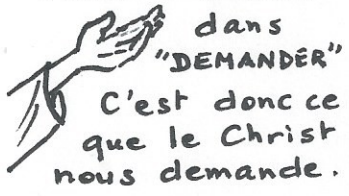 dans
"DEMANDER"
C'est donc ce
que le Christ
nous demande.